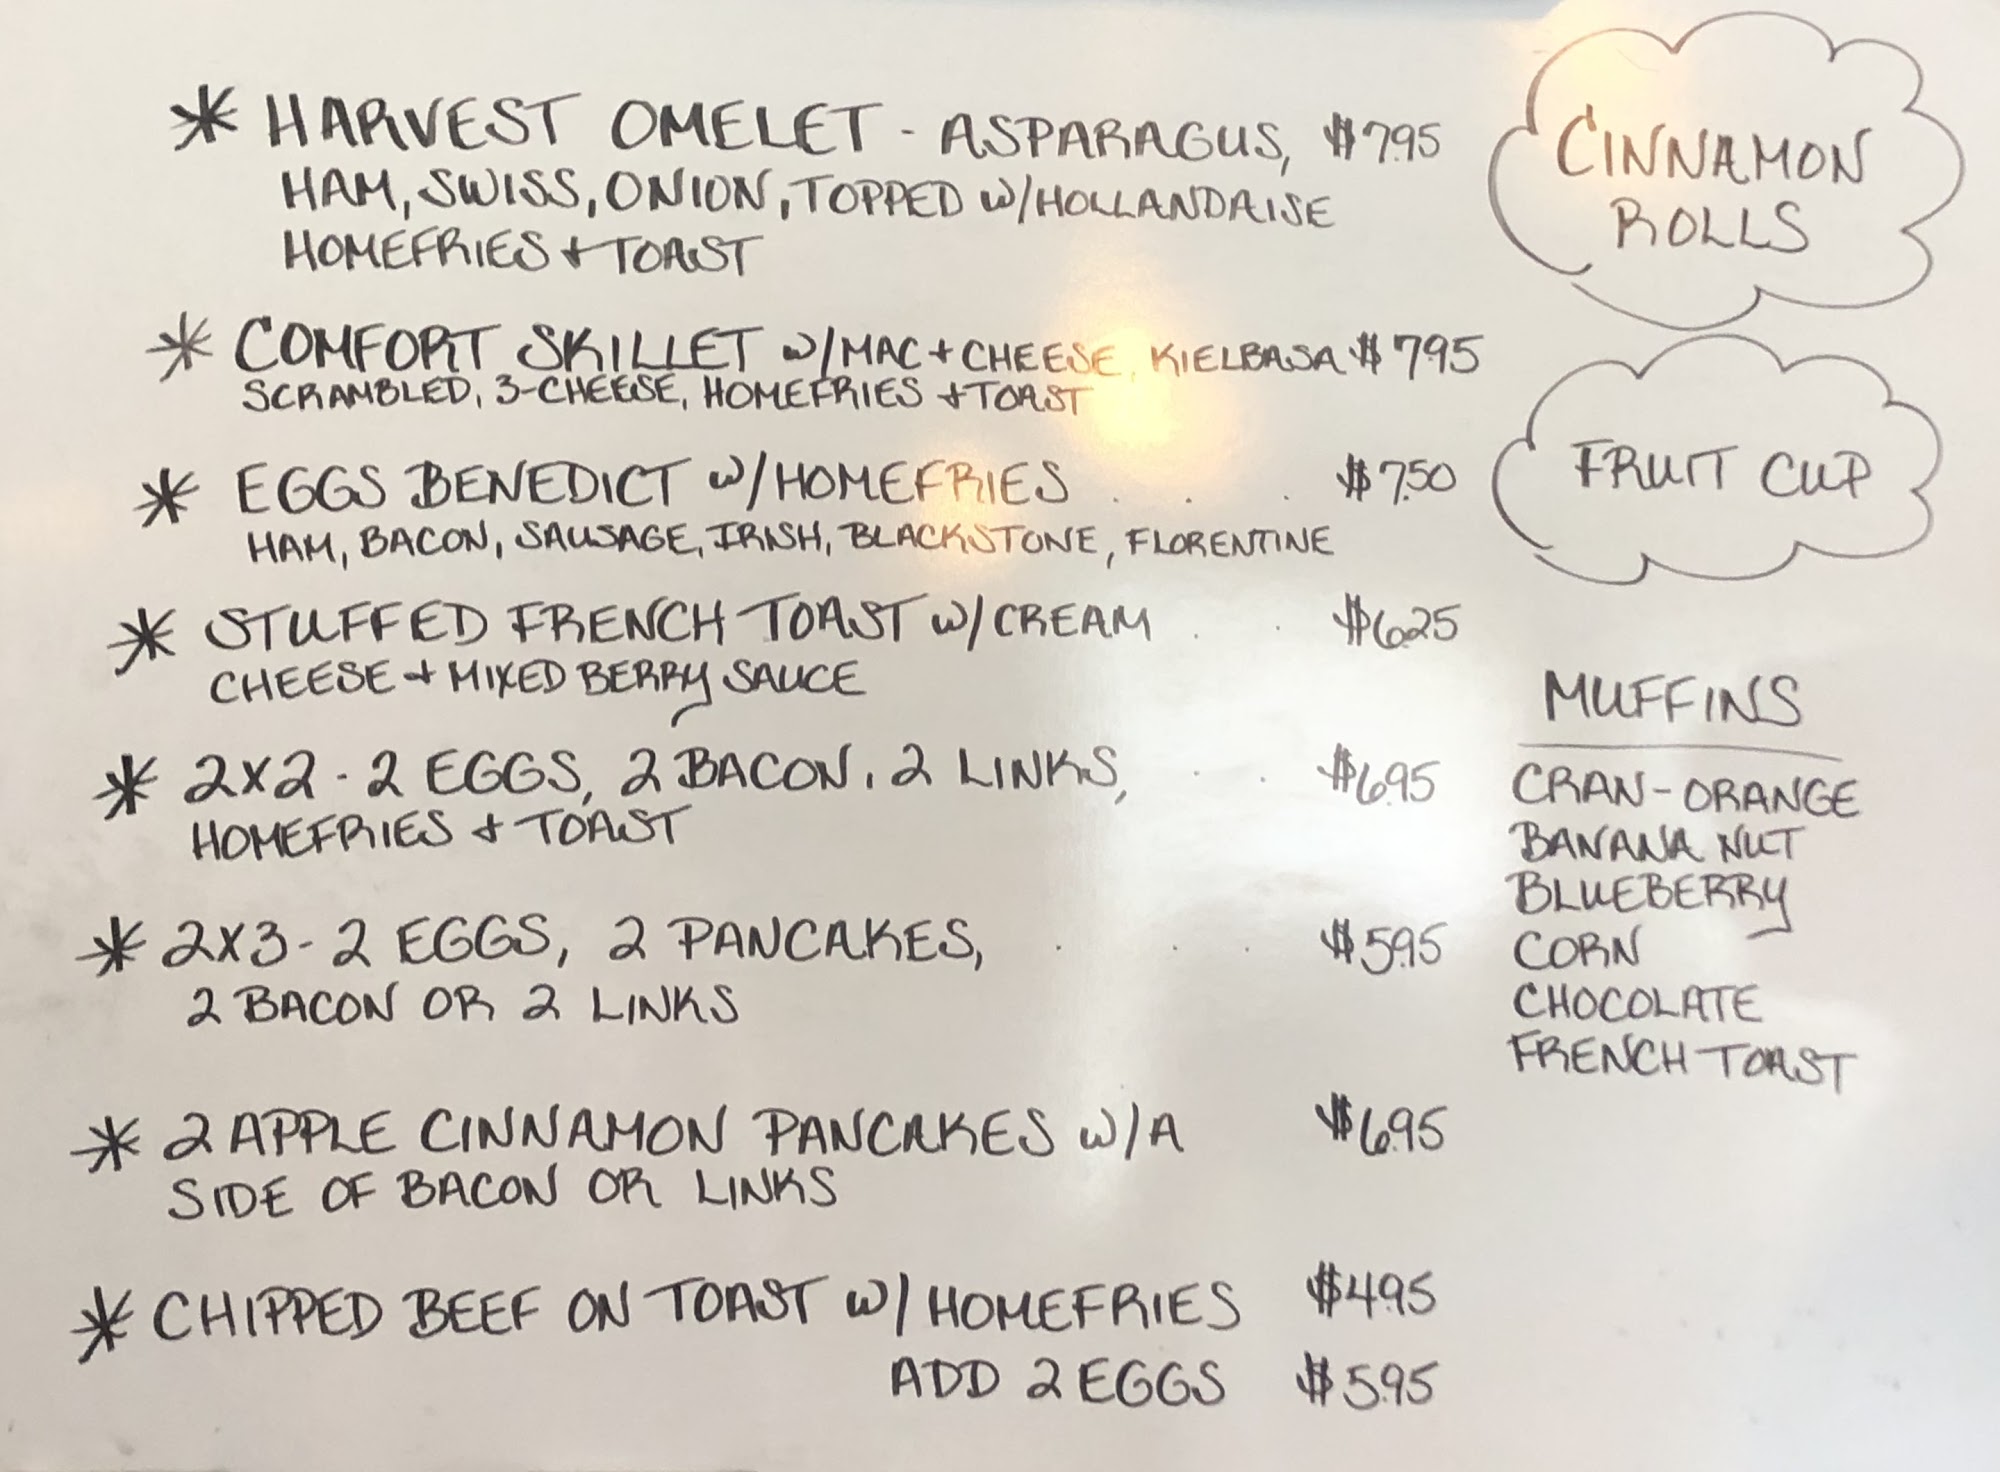 * HARVEST OMELET - ASPARAGUS, $7.95
HAM, SWISS, ONION, TOPPED W/HOLLANDAISE
HOMEFRIES + TOAST
* COMFORT SKILLET W/MAC + CHEESE, KIELBASA $7.95
SCRAMBLED, 3-CHEESE, HOMEFRIES + TOAST
* EGGS BENEDICT W/HOMEFRIES . . . $7.50
HAM, BACON, SAUSAGE, IRISH, BLACKSTONE, FLORENTINE
* STUFFED FRENCH TOAST W/CREAM . . $6.25
CHEESE + MIXED BERRY SAUCE
* 2X2 - 2 EGGS, 2 BACON, 2 LINKS, . . $6.95
HOMEFRIES + TOAST
* 2X3 - 2 EGGS, 2 PANCAKES, . . . $5.95
2 BACON OR 2 LINKS
* 2 APPLE CINNAMON PANCAKES W/A $6.95
SIDE OF BACON OR LINKS
* CHIPPED BEEF ON TOAST W/HOMEFRIES $4.95
ADD 2 EGGS $5.95
CINNAMON
ROLLS
FRUIT CUP
MUFFINS
CRAN-ORANGE
BANANA NUT
BLUEBERRY
CORN
CHOCOLATE
FRENCH TOAST